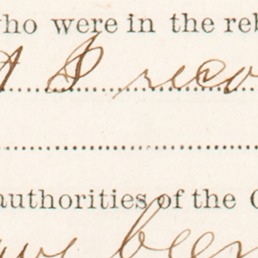 who were in the reb
I reco
authorities of the C
have been